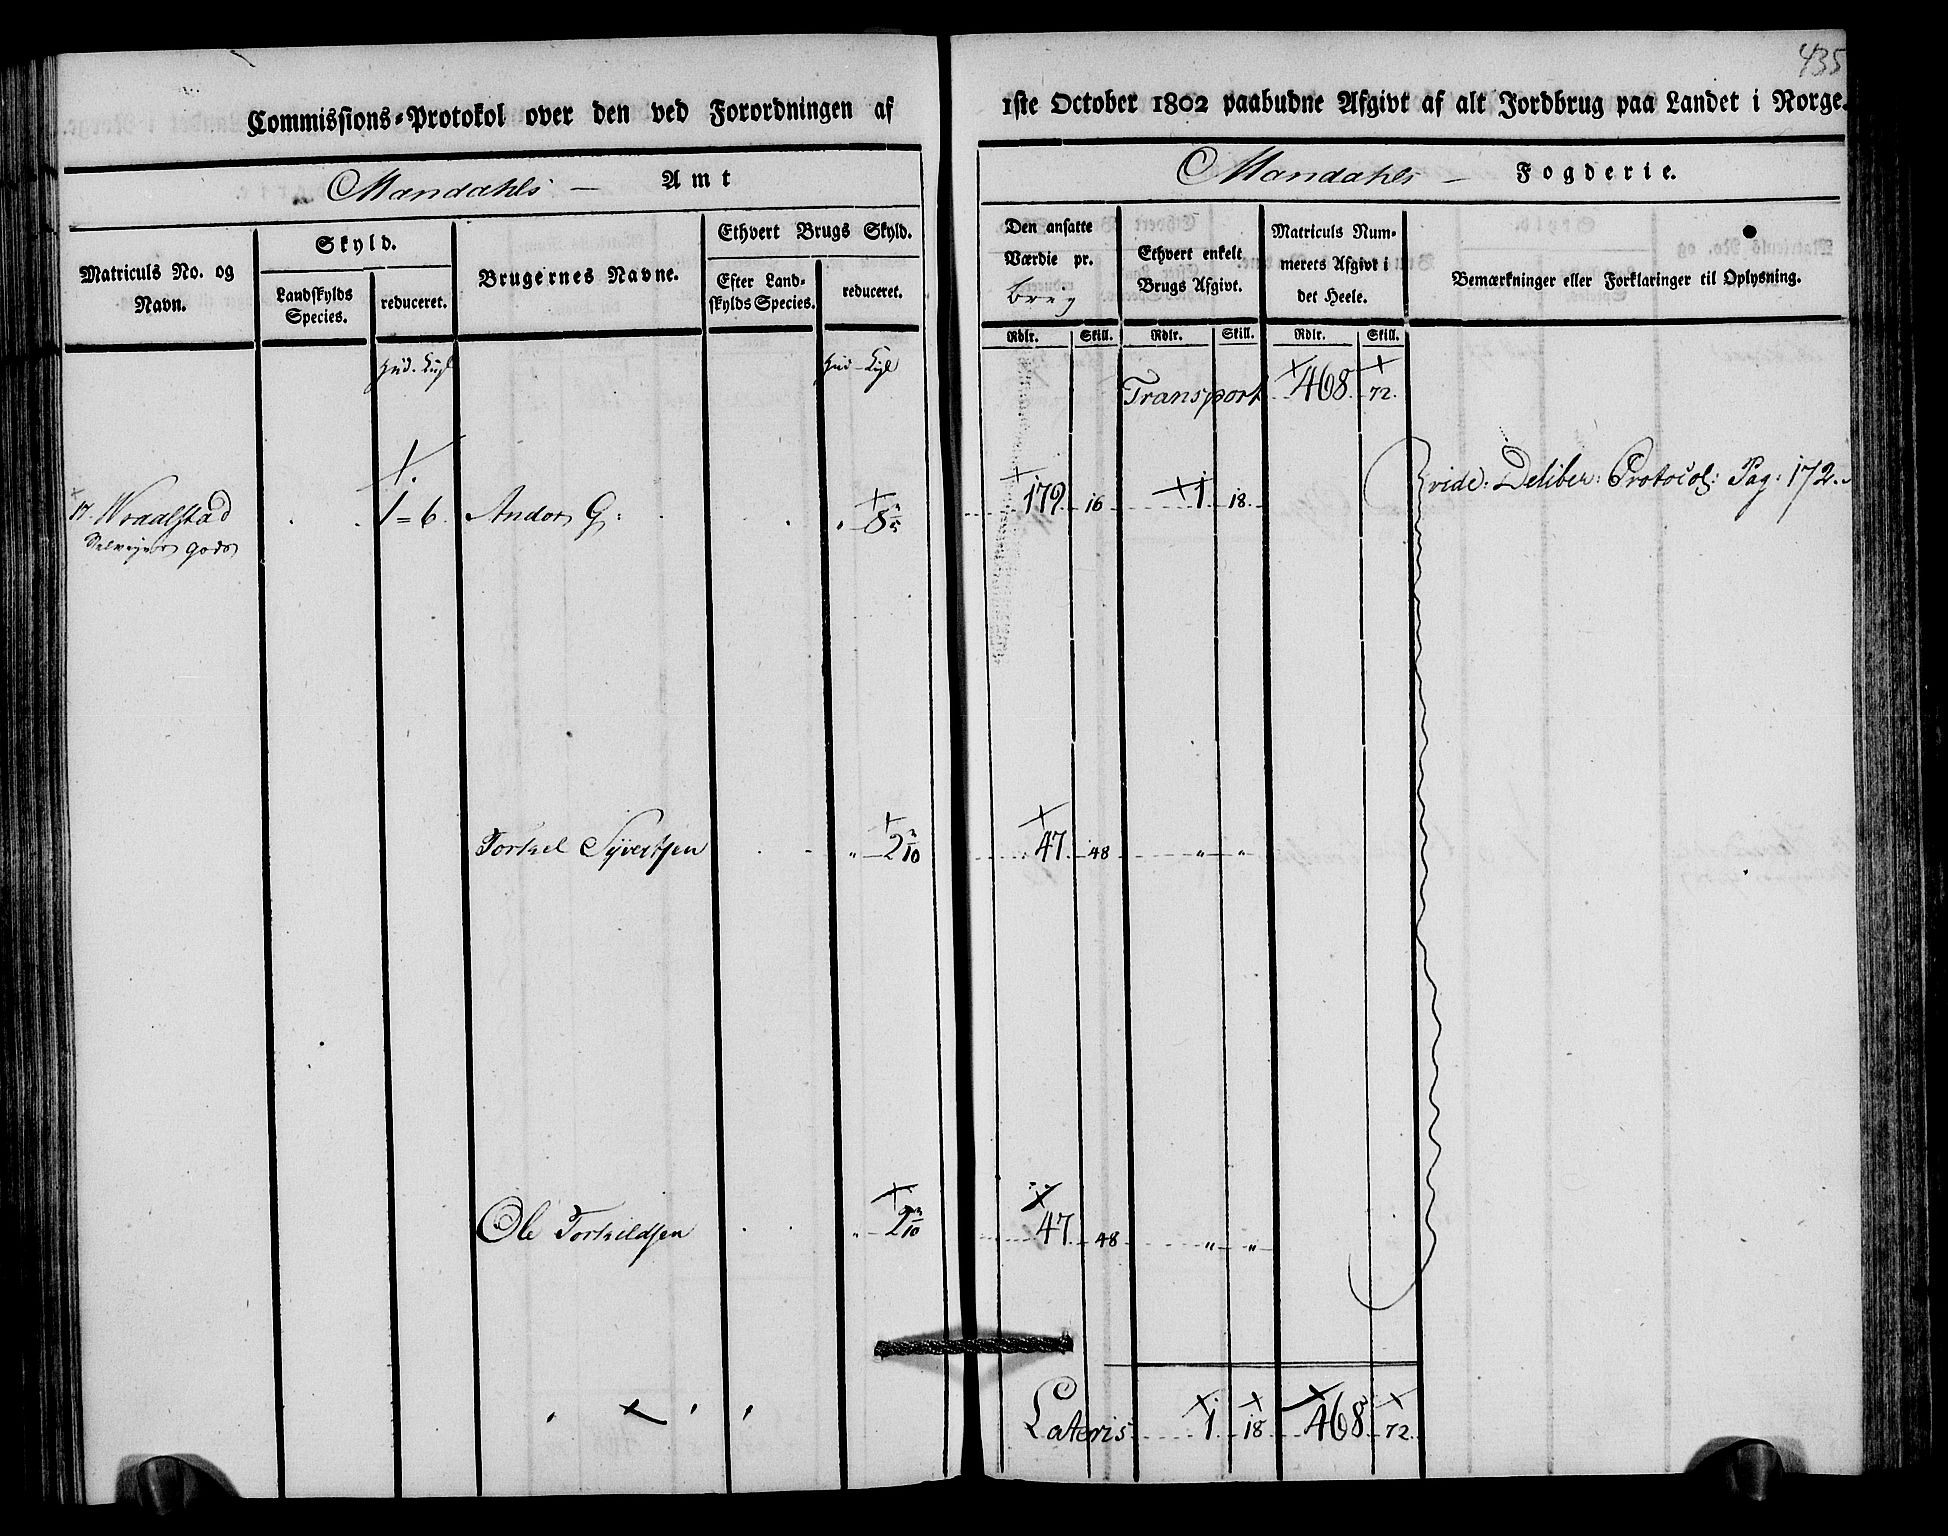 435
Commissions-Protokol over den ved Forordningen af 1ste October 1802 paabudne Afgivt af alt Jordbrug paa Landet i Norge.
Mandahls — Amt
Mandahls — Fogderie.
Matriculs No. og Navn.
Skyld.
Landskylds Species.
reduceret.
Brugernes Navne.
Ethvert Brugs Skyld.
Efter Landskylds Species.
reduceret.
Den ansatte Værdie pr. brug
Ethvert enkelt Brugs Afgivt.
Matriculs Nummerets Afgivt i det Heele.
Bemærkninger eller Forklaringer til Oplysning.
Rdlr. Skill. Rdlr. Skill. Rdlr. Skill.
Transport 468 72.
17. Wraalstad 1 = 6. Andor G: 179 16 1 18 vide: Deliber: Protocol: Pag: 172.
gods
Torkel Syvertsen " 2 3/10 47 48 " "
Ole Torkildsen " 2 3/10 47 48 " "
Lateris 1 18 468 72.